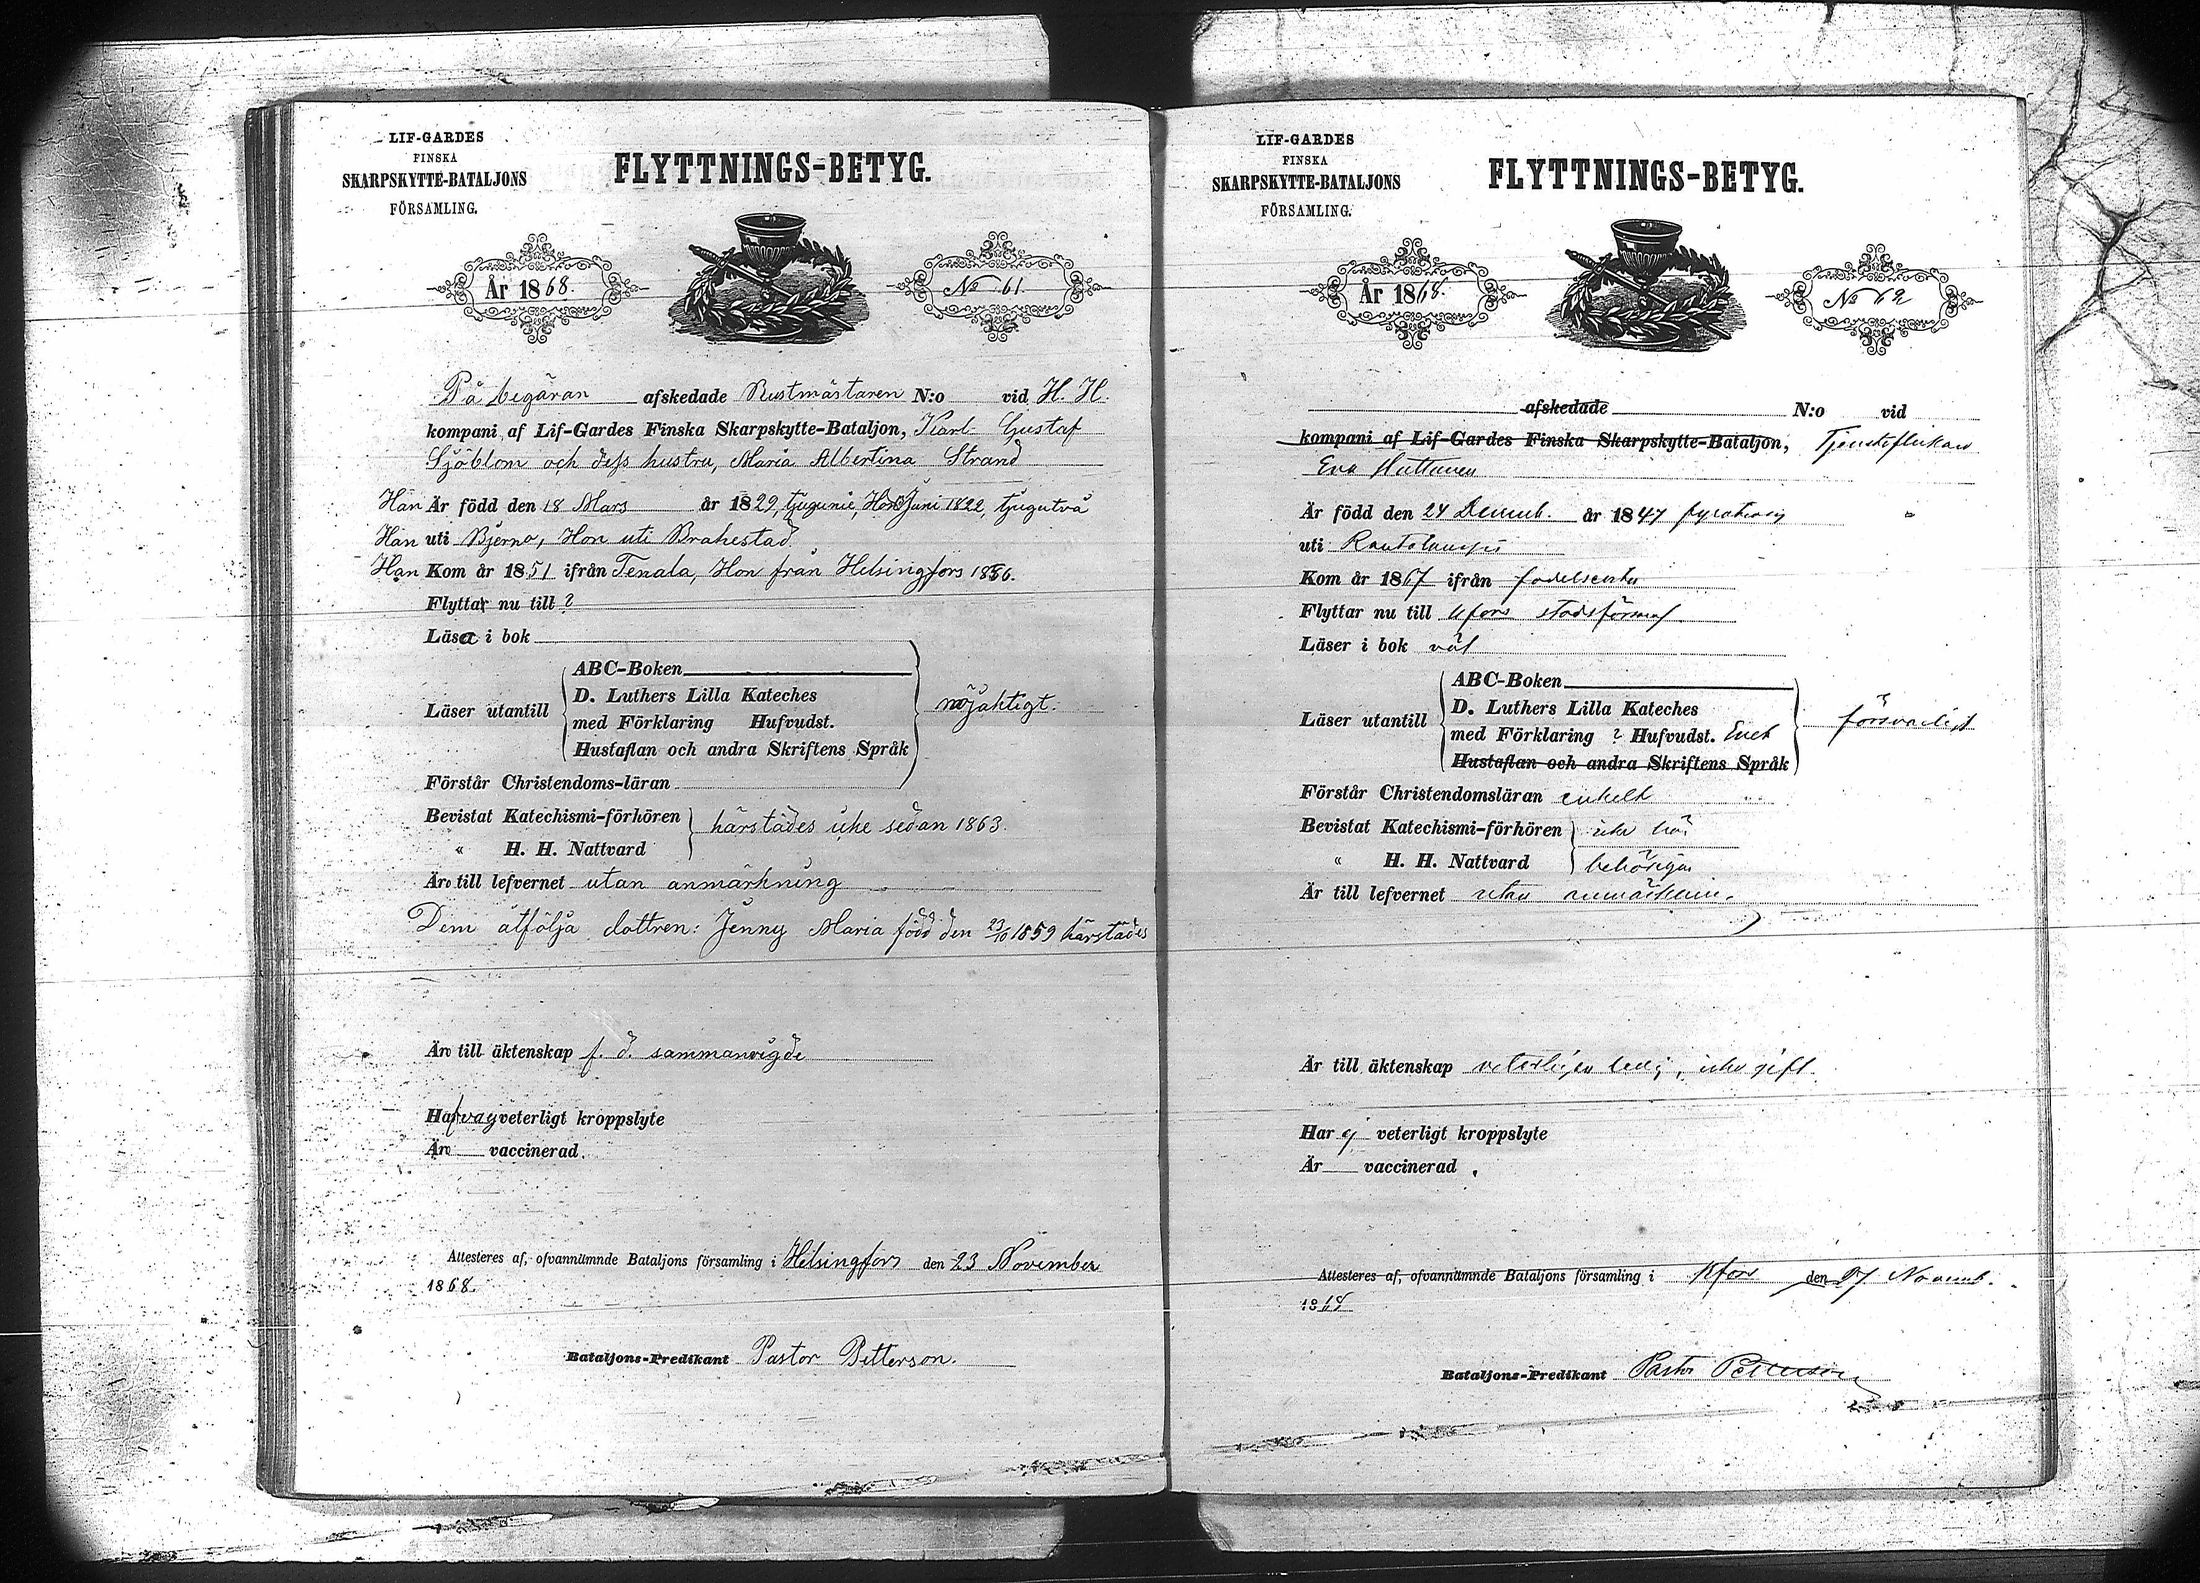 LIF-GARDES
FINSKA
SKARPSKYTTE-BATALJONS
FÖRSAMLING.
FLYTTNINGS-BETYG.
År 1868.
No 61.
På begäran afskedade Rustmästaren N:o vid H. H.
kompani af Lif-Gardes Finska Skarpskytte-Bataljon, Karl Gustaf
Sjöblom och dess hustru, Maria Albertina Strand
Han Är född den 18 Mars år 1829, tjugunie, Hon Juni 1822, tjugutvå
Han uti Bjerno, Hon uti Brahestad
Han Kom år 1851 ifrån Tenala, Hon från Helsingfors 1856.
Flytta nu till ?
Läsa i bok
ABC-Boken
D. Luthers Lilla Kateches
Läser utantill nöjaktigt.
med Förklaring Hufvudst.
Hustaflan och andra Skriftens Språk
Förstår Christendoms-läran
Bevistat Katechismi-förhören härstädes icke sedan 1863.
« H. H. Nattvard
Äro till lefvernet utan anmärkning
Dem åtfölja dottren: Jenny Maria född den 23/10 1859 härstädes
Äro till äktenskap f. d. sammanvigde
Hafva ej veterligt kroppslyte
Äro vaccinerad.
Attesteras af, ofvannämnde Bataljons församling i Helsingfors den 23 November
1868.
Bataljons-Predikant Pastor Petterson.
LIF-GARDES
FINSKA
SKARPSKYTTE-BATALJONS
FÖRSAMLING.
FLYTTNINGS-BETYG.
År 1868.
No 62
afskedade N:o vid
kompani af Lif-Gardes Finska Skarpskytte-Bataljon, Tjensteflickan
Eva Huttunen
Är född den 24 Decemb. år 1847 fyratiosju
uti Rautalampi
Kom år 1867 ifrån födelseorten
Flyttar nu till Hfors stadsförsaml
Läser i bok väl
ABC-Boken
D. Luthers Lilla Kateches
Läser utantill försvarligt
med Förklaring 2 Hufvudst.
Hustaflan och andra Skriftens Språk
Förstår Christendomsläran enkelt
Bevistat Katechismi-förhören icke här
« H. H. Nattvard behörigen
Är till lefvernet utan anmärkning
Är till äktenskap veterligen ledig, icke gift.
Har ej veterligt kroppslyte
Är vaccinerad
Attesteres af, ofvannämnde Bataljons församling i Hfors den 27 Novemb.
1868
Bataljons-Predikant Pastor Petterson